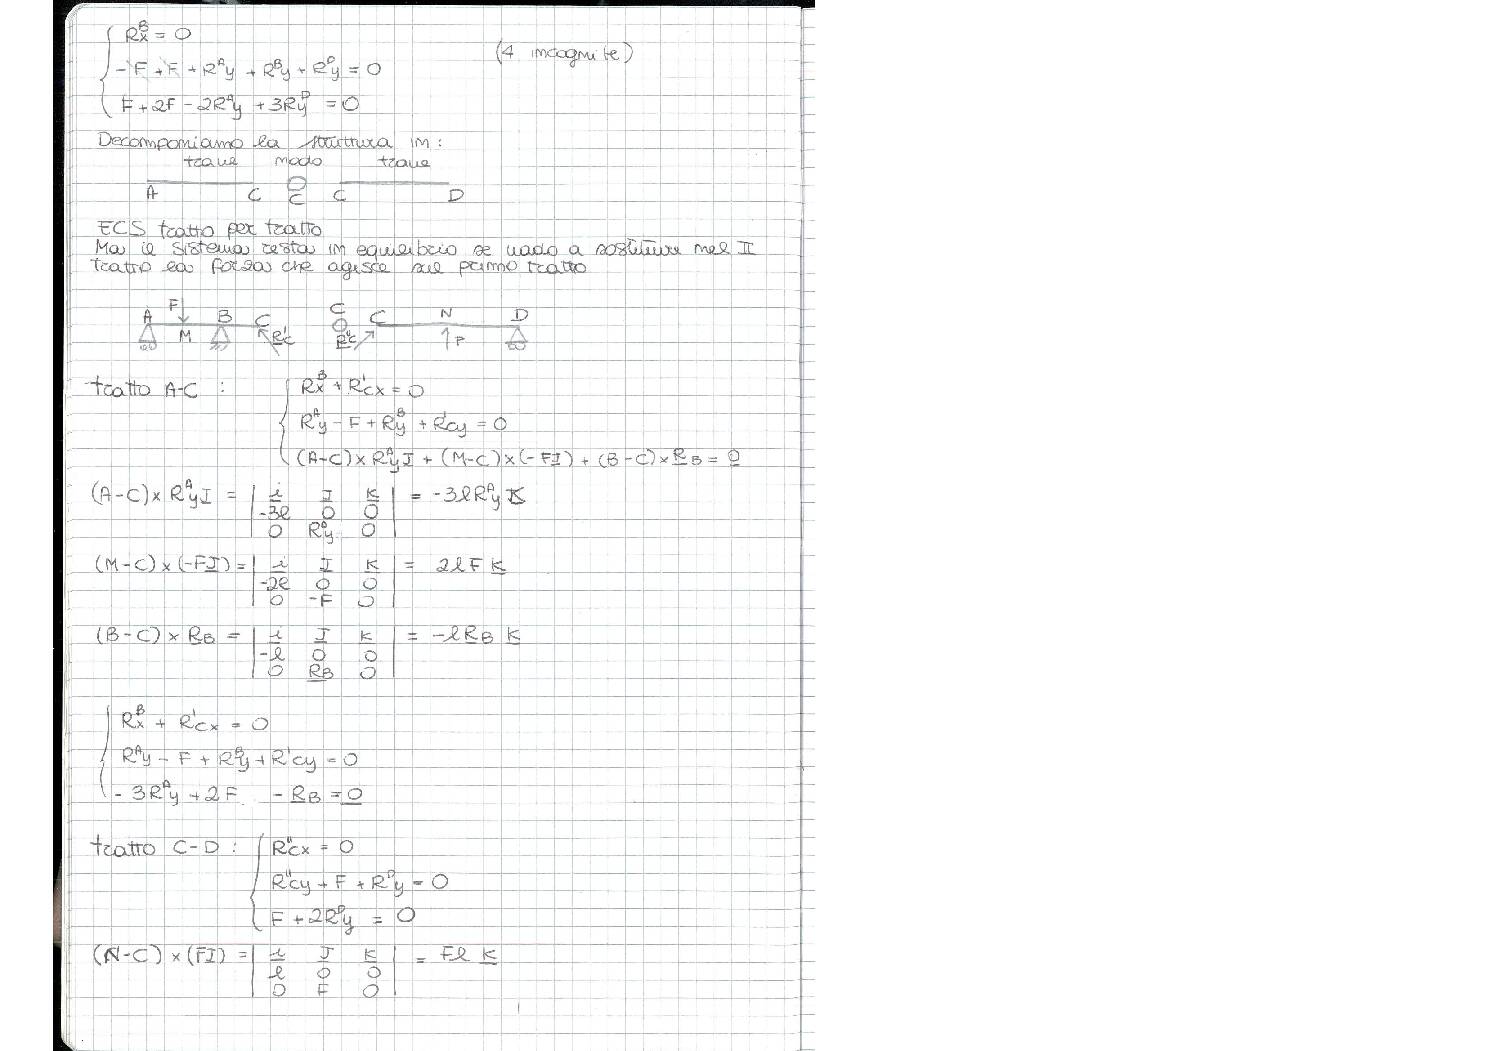 Rx^B = 0
(4 incognite)
- F + F + R^Ay + R^By + R^Dy = 0
F + 2F - 2R^Ay + 3Ry^D = 0
Decomponiamo la struttura in:
trave nodo trave
A C C C D
ECS tratto per tratto
Ma il sistema resta in equilibrio se vado a sostituire nel II
tratto la forza che agisce sul primo tratto
A F B C C C N D
M R'c R"c F
tratto A-C : Rx^B + R'cx = 0
Ry^A - F + Ry^B + R'cy = 0
(A-C) x R^Ay J + (M-C) x (-FJ) + (B-C) x RB = 0
(A-C) x R^Ay J = | i J K | = -3lR^Ay K
-3l 0 0
0 R^Ay 0
(M-C) x (-FJ) = | i J K | = 2lF K
-2l 0 0
0 -F 0
(B-C) x RB = | i J K | = -lRB K
-l 0 0
0 RB 0
Rx^B + R'cx = 0
R^Ay - F + R^By + R'cy = 0
- 3R^Ay + 2F - RB = 0
tratto C-D : R"cx = 0
R"cy + F + R^Dy = 0
F + 2R^Dy = 0
(N-C) x (FJ) = | i J K | = Fl K
l 0 0
0 F 0